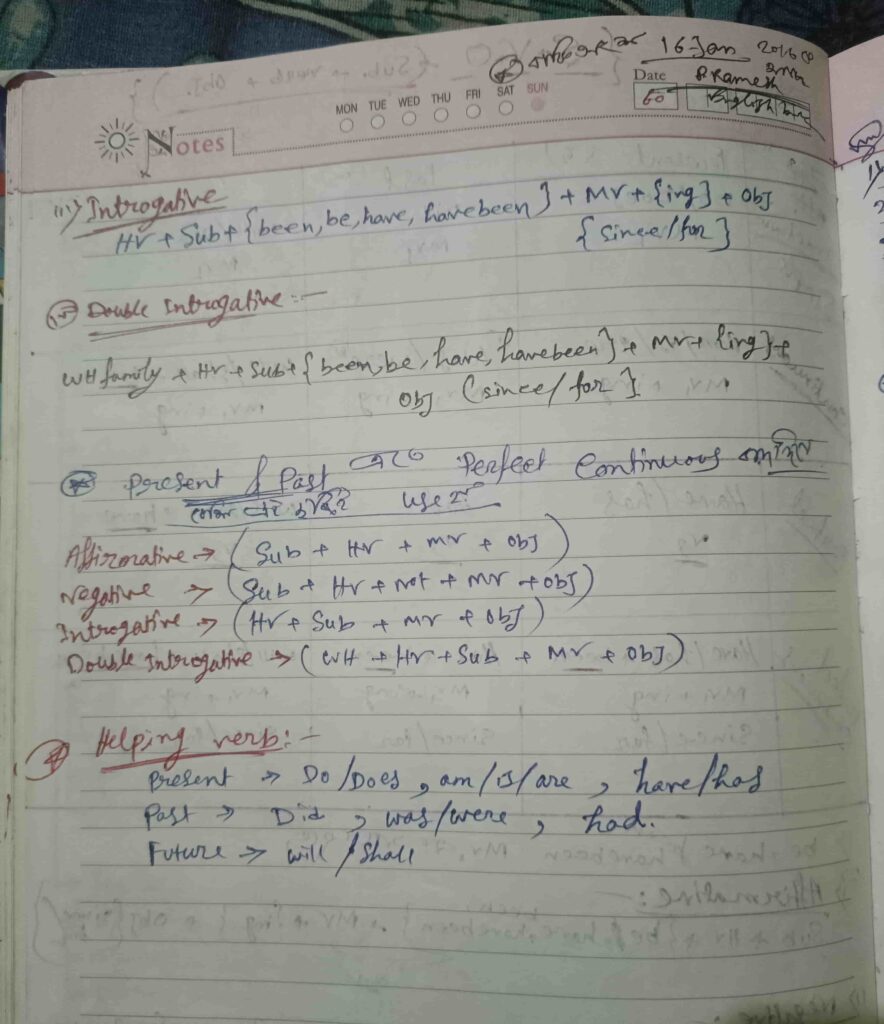 16 Jan 2016
MON TUE WED THU FRI SAT SUN
Date
Pramesh
60
Notes
iii) Introgative
HV + Sub + {been, be, have, havebeen} + MV + {ing} + Obj
{since/for}
Double Introgative :-
WH family + HV + Sub + {been, be, have, havebeen} + MV + {ing} +
Obj (since/for}
Present & Past Perfect Continuous
use
Affirmative → (Sub + HV + MV + Obj)
Negative → (Sub + HV + not + MV + Obj)
Introgative → (HV + Sub + MV + Obj)
Double Introgative → (WH + HV + Sub + MV + Obj)
Helping verb :-
Present → Do/Does, am/is/are, have/has
Past → Did, was/were, had.
Future → will/Shall